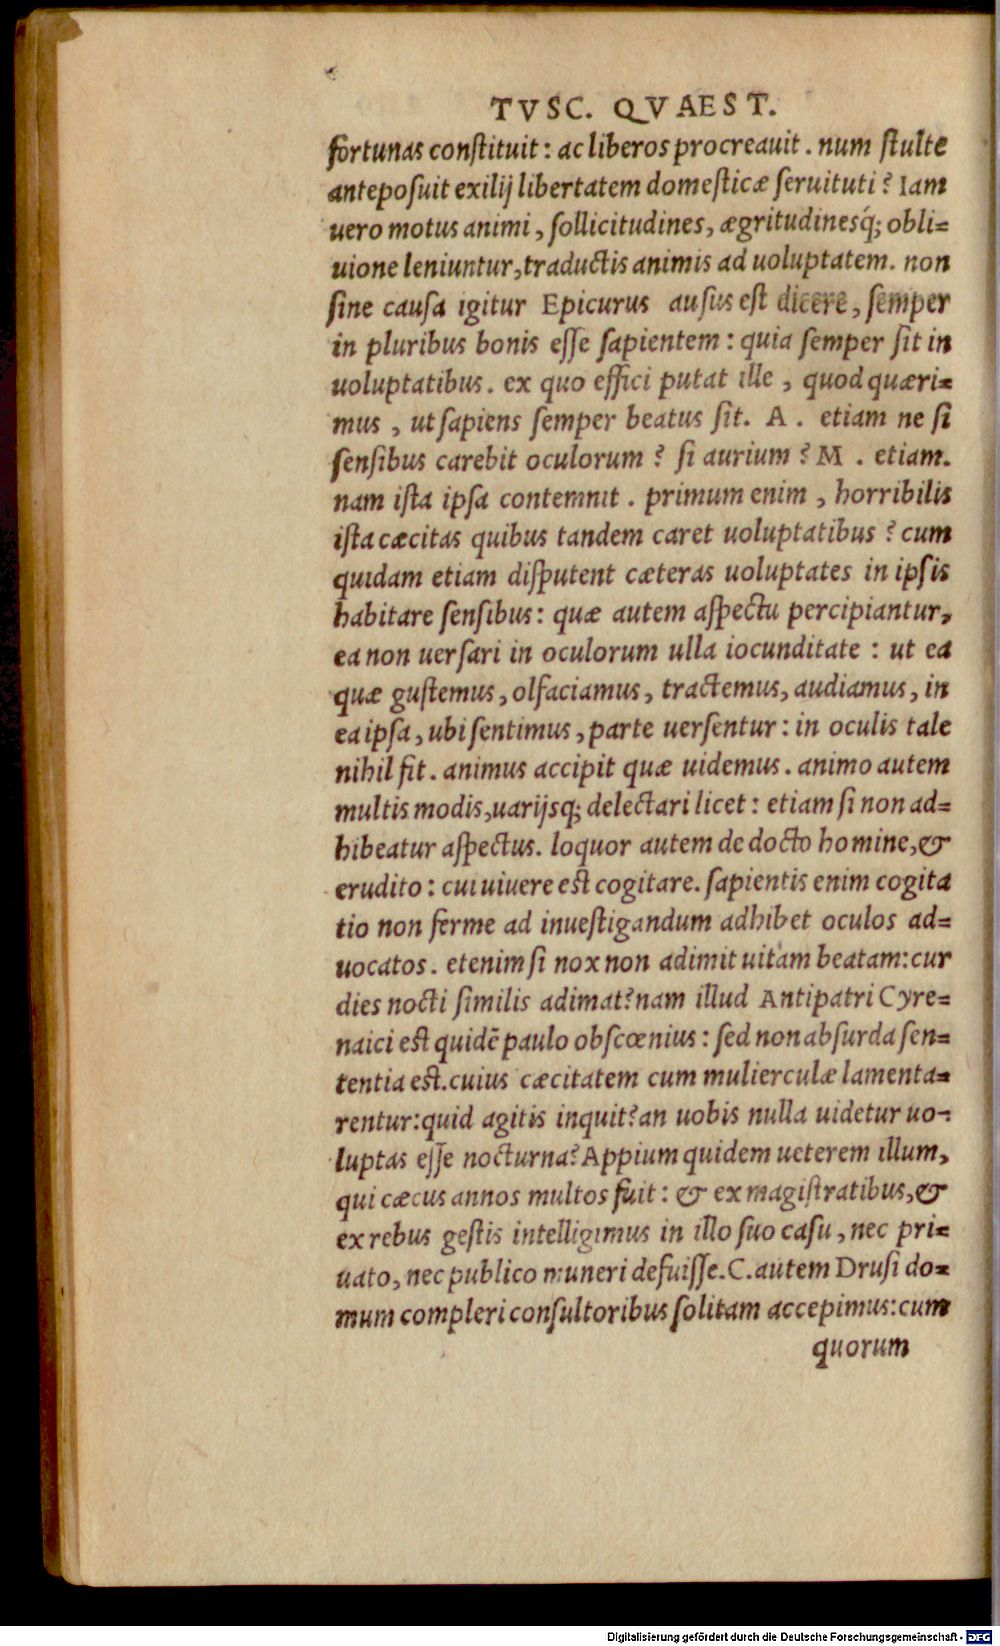 TVSC. QVAEST.
fortunas constituit: ac liberos procreauit. num stulte
anteposuit exilij libertatem domesticæ seruituti? Iam
uero motus animi, sollicitudines, ægritudinesq́; obli=
uione leniuntur, traductis animis ad uoluptatem. non
sine causa igitur Epicurus ausus est dicere, semper
in pluribus bonis esse sapientem: quia semper sit in
uoluptatibus. ex quo effici putat ille, quod quæri=
mus, ut sapiens semper beatus sit. A. etiam ne si
sensibus carebit oculorum? si aurium? M. etiam.
nam ista ipsa contemnit. primum enim, horribilis
ista cæcitas quibus tandem caret uoluptatibus? cum
quidam etiam disputent cæteras uoluptates in ipsis
habitare sensibus: quæ autem aspectu percipiantur,
ea non uersari in oculorum ulla iocunditate: ut ea
quæ gustemus, olfaciamus, tractemus, audiamus, in
ea ipsa, ubi sentimus, parte uersentur: in oculis tale
nihil fit. animus accipit quæ uidemus. animo autem
multis modis, uarijsq; delectari licet: etiam si non ad=
hibeatur aspectus. loquor autem de docto homine, &
erudito: cui uiuere est cogitare. sapientis enim cogita
tio non ferme ad inuestigandum adhibet oculos ad=
uocatos. etenim si nox non adimit uitam beatam: cur
dies nocti similis adimat? nam illud Antipatri Cyre=
naici est quidē paulo obscœnius: sed non absurda sen=
tentia est. cuius cæcitatem cum mulierculæ lamenta=
rentur: quid agitis inquit? an uobis nulla uidetur uo=
luptas esse nocturna? Appium quidem ueterem illum,
qui cæcus annos multos fuit: & ex magistratibus, &
ex rebus gestis intelligimus in illo suo casu, nec pri=
uato, nec publico muneri defuisse. C. autem Drusi do=
mum compleri consultoribus solitam accepimus: cum
quorum
Digitalisierung gefördert durch die Deutsche Forschungsgemeinschaft - DFG